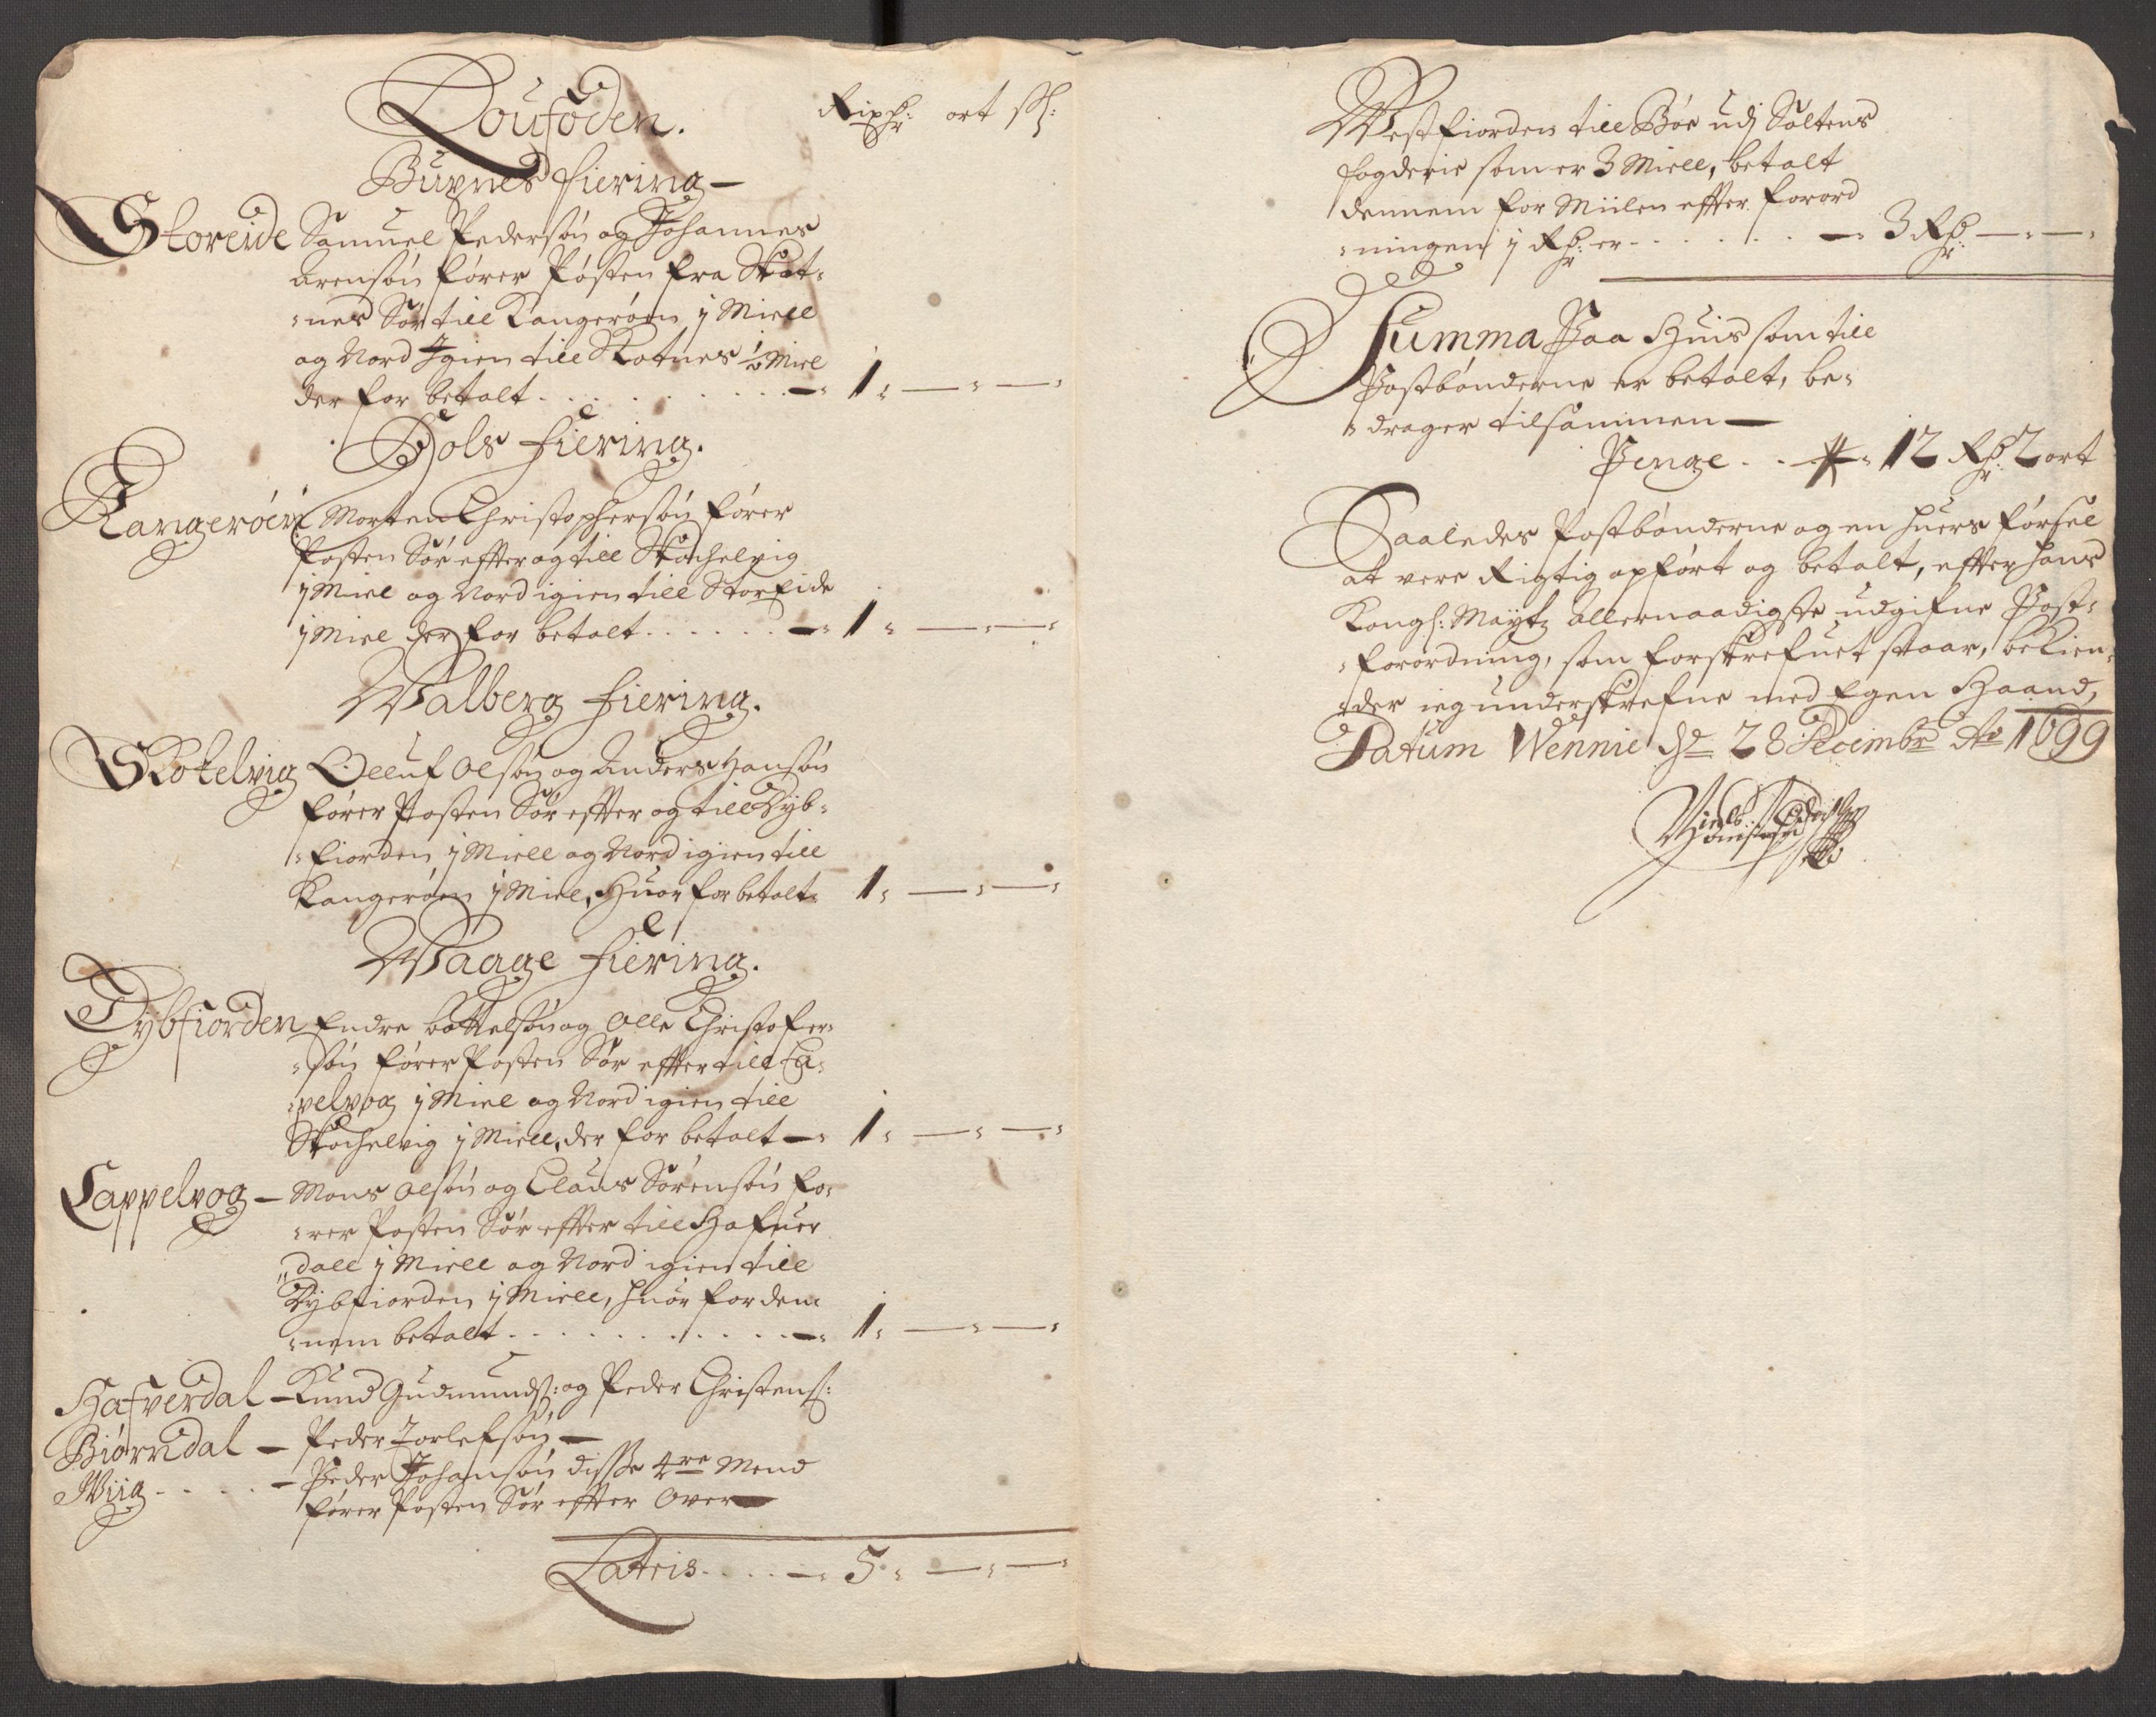 Loufoden.
Rixdr: ort ſſ:
Buxnes fiering
Storeide Samuel Pedersøn og Johannes
Arensøn fører Posten fra Skot-
nes Sør till Kangerøen j Miell
og Nord Igien till Skotnes ½ Miel
der for betalt . . . 1 - - -
Hols fiering.
Kangerøen Morten Christophersøn fører
Posten Sør effter og till Skochelvig
j Miel og Nord igien till Storeide
j Miel der for betalt . . . 1 - - -
Walberg fiering.
Skotelvig Olluf Olsøn og Anders Hansøn
fører Posten Sør effter og till Dyb-
fiorden j Miell og Nord igien till
Kangerøen j Miel, Huor for betalt 1 - - -
Waage fiering.
Dybfiorden Endre bottelsøn og Olle Christofer-
søn fører Posten Sør effter till Ca-
pelvog j Miel og Nord igien till
Skochelvig j Miell, der for betalt 1 - - -
Cappelvog - Mons Olsøn og Claus Sørensøn fø-
rer Posten Sør effter till Hafuer
dall j Miell og Nord igien till
Dybfiorden j Miell, huor for den-
nem betalt . . . 1 - - -
Hafverdal - Knud Gudmunds: og Peder Christens:
Biørndal - Peder Torlefsøn
Wiig . . . - Peder Johansøn disse 4re Mend
fører Posten Sør effter over
Latris . . . 5 - - -
Westfiorden till Bøe udj Saltens
fogderie som er 3 Miell, betalt
dennem for Miilen effter forord
ningen j Rdr: er . . . 3 Rdr - - -
Summa Paa Huis som till
Postbønderne er betalt, be-
drager tilsammen
Penge . . 12 Rdr 2 ort
Saaledes Postbønderne og en huers førsel
at vere Rigtig opført og betalt, effter hans
Kongl: Maytz Allernaadigste udgifne Post-
forordning, som forskrefuet staar, bekien-
der ieg underskrefne med Egen Haand,
Datum Wennie d. 28 Decembr Ao 1699
Niels